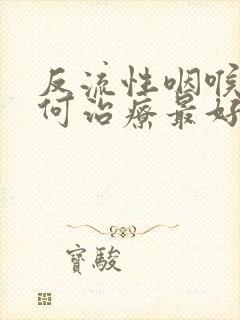 反流性咽喉
何治療最好
寶駿